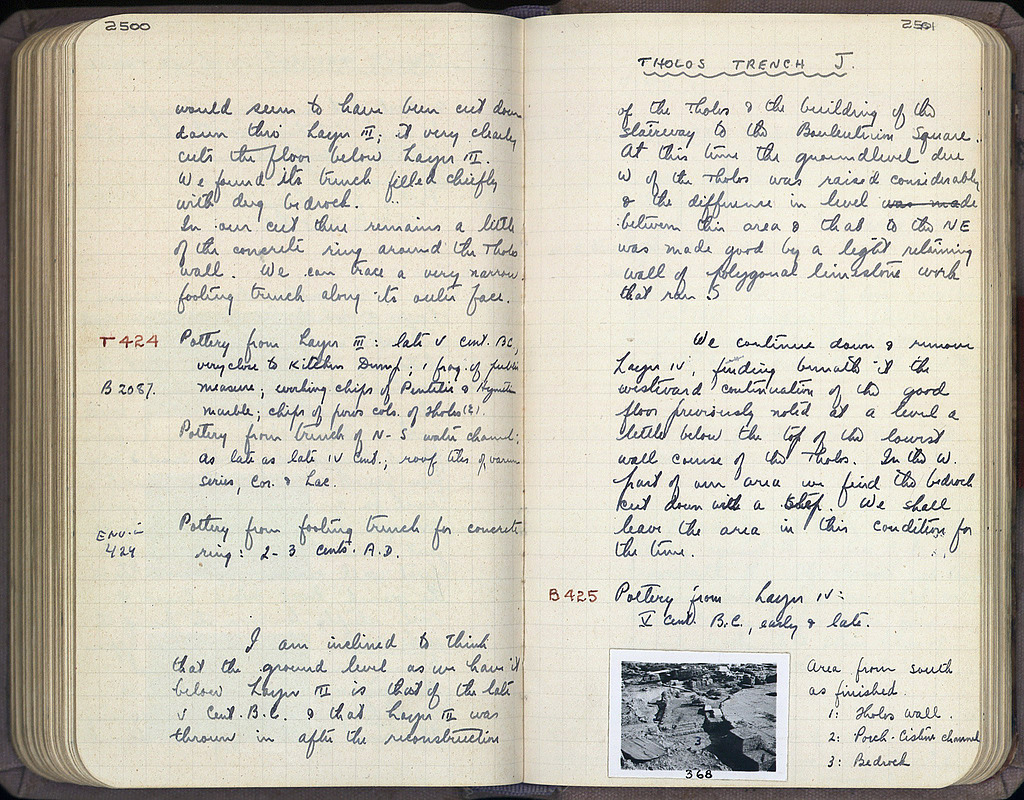 2500
would seem to have been cut down
down thro' Layer III; it very clearly
cuts the floor below Layer III.
We found its trench filled chiefly
with dug bedrock.
In our cut there remains a little
of the concrete ring around the Tholos
wall. We can trace a very narrow
footing trench along its outer face.
T 424
Pottery from Layer III: late V cent. BC,
very close to Kitchen Dump; 1 frag. of public
B 2087.
measure; working chips of Pentelic & Hymettian
marble; chips of poros cols. of Tholos(?).
Pottery from trench of N-S water channel:
as late as late IV cent.; roof tiles of various
series, Cor. & Lac.
424
Pottery from footing trench for concrete
ring: 2-3 cents. A.D.
I am inclined to think
that the ground level as we have it
below Layer III is that of the late
V cent. B.C. & that Layer III was
thrown in after the reconstruction
2501
THOLOS TRENCH J.
of the Tholos & the building of the
stairway to the Bouleuterion Square.
At this time the groundlevel due
W of the Tholos was raised considerably
& the difference in level was made
between this area & that to the NE
was made good by a light retaining
wall of polygonal limestone work
that ran S
We continue down & remove
Layer IV, finding beneath it the
westward continuation of the good
floor previously noted at a level a
little below the top of the lowest
wall course of the Tholos. In the W.
part of our area we find the bedrock
cut down with a step. We shall
leave the area in this condition for
the time.
B 425
Pottery from Layer IV:
V cent. B.C., early & late.
Area from south
as finished.
1: Tholos wall.
2: Porch-Cistern channel
3: Bedrock
3
368